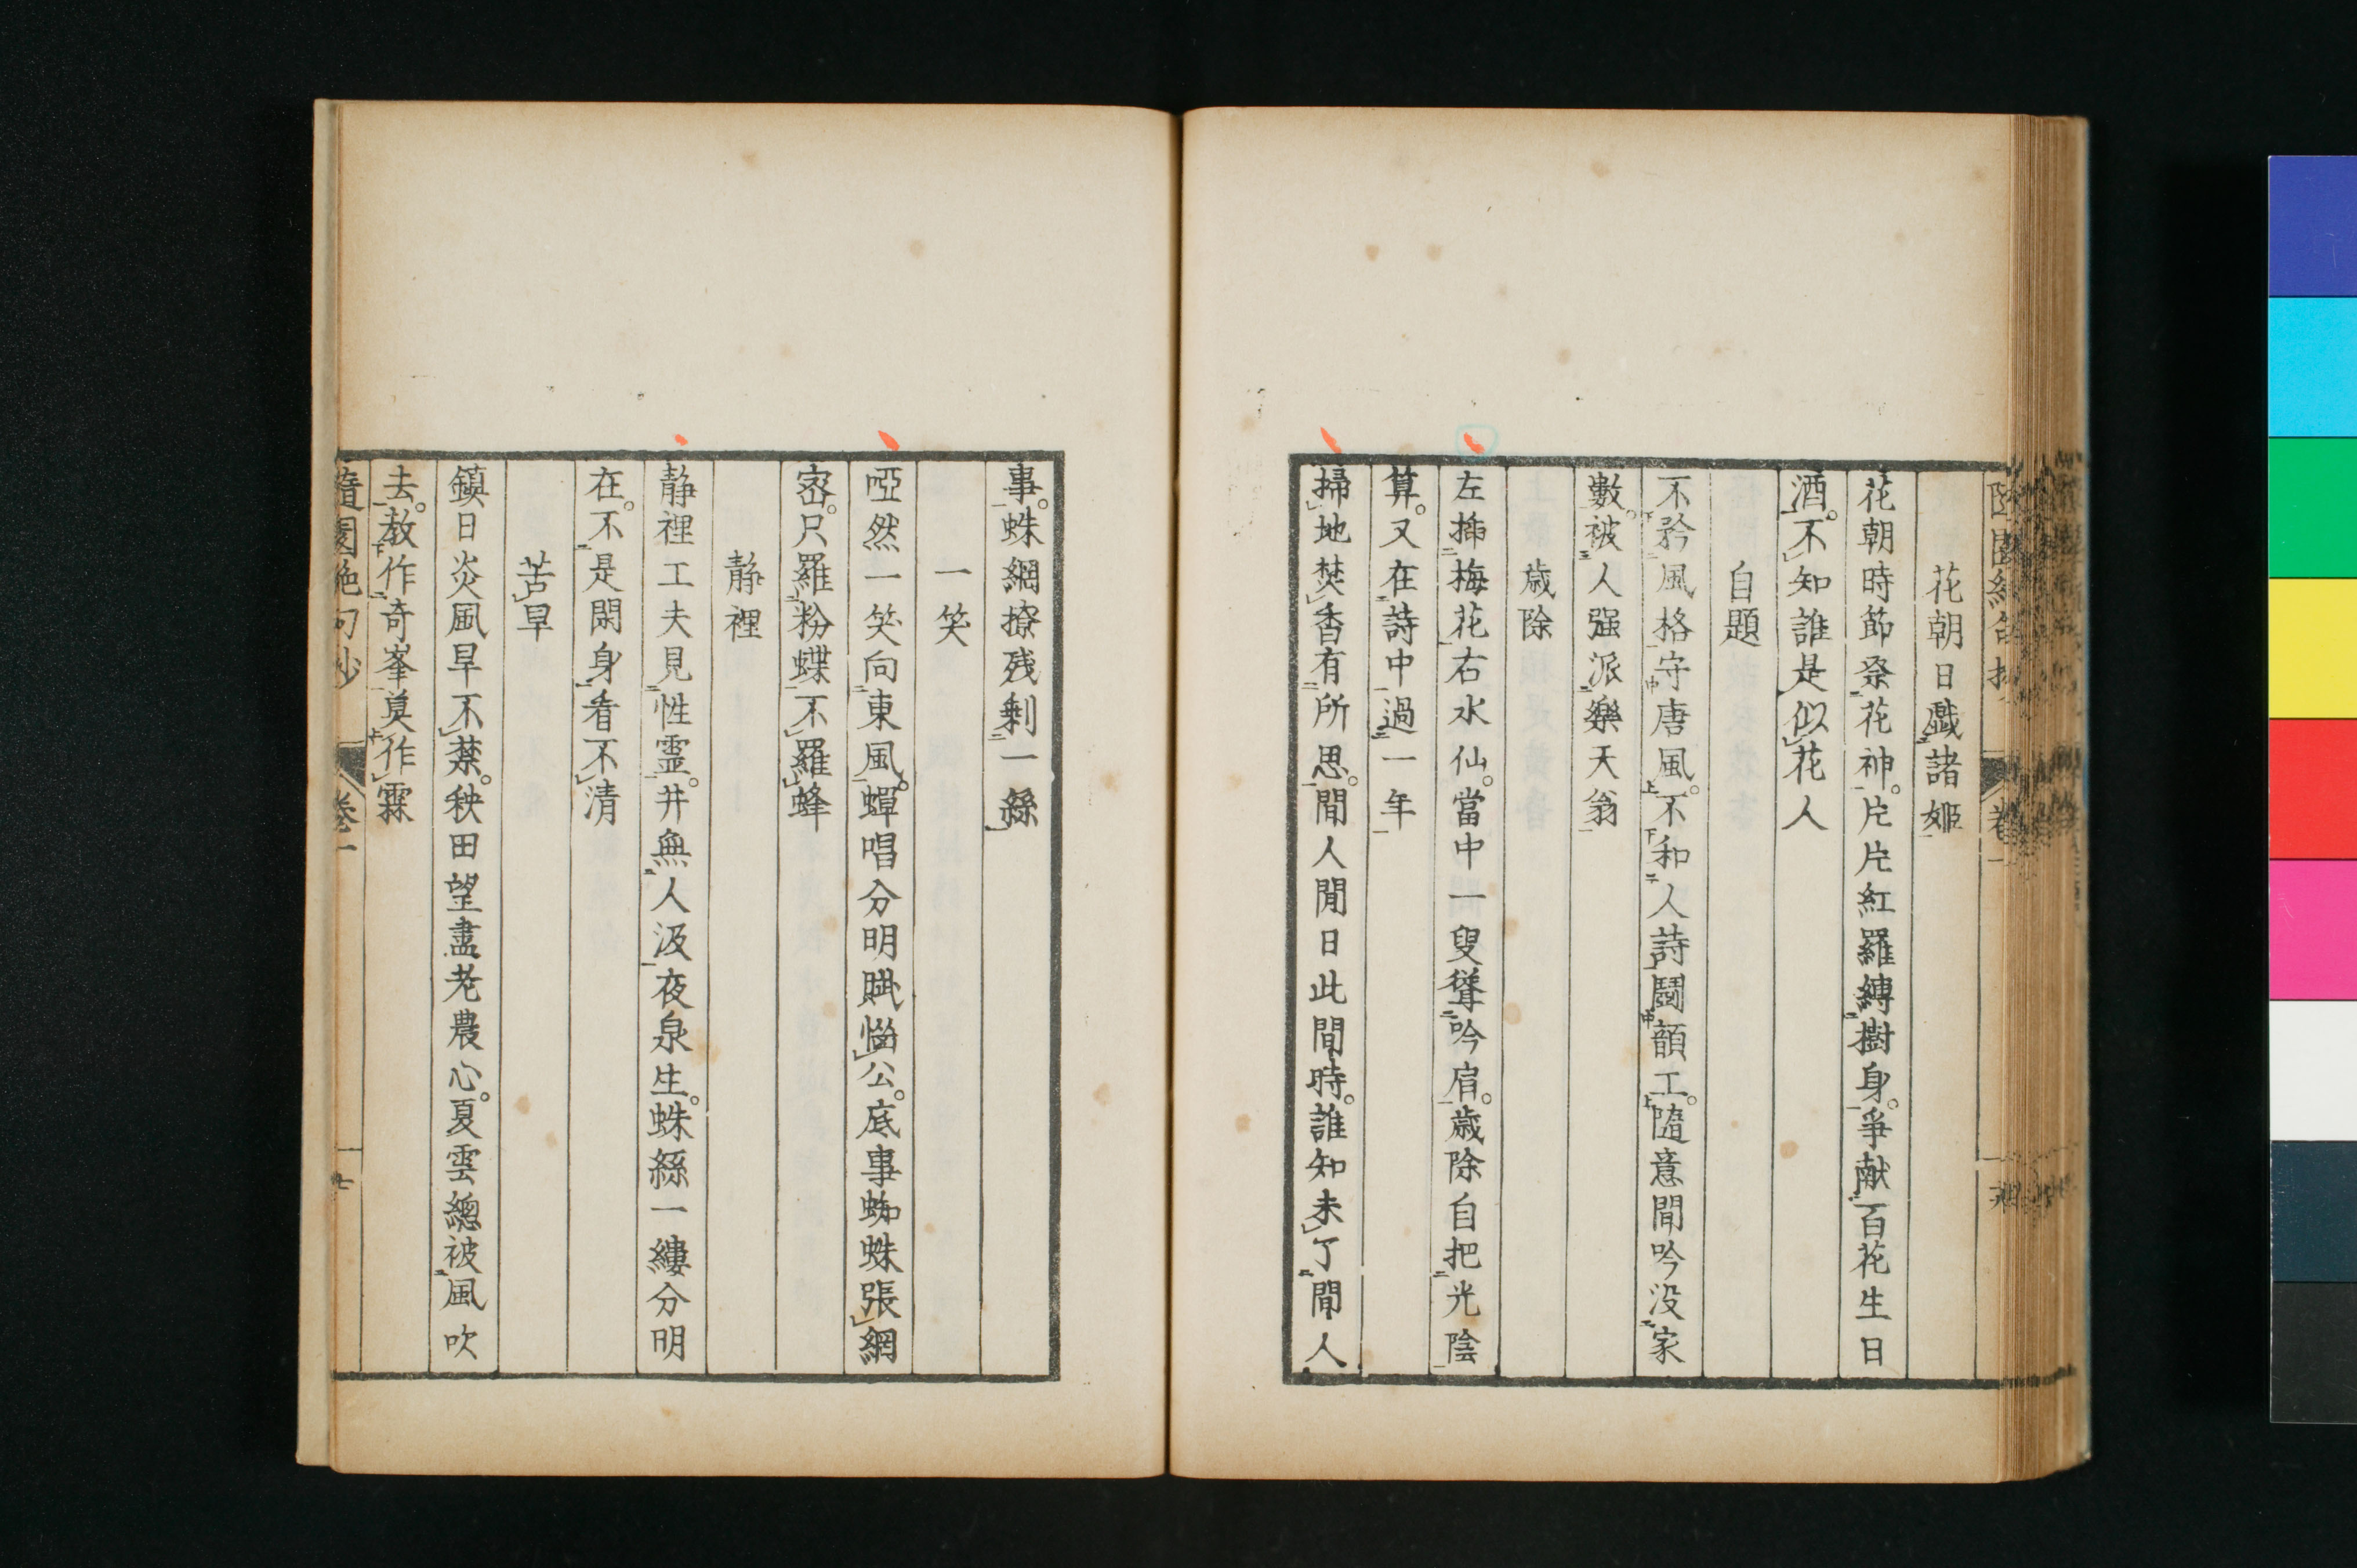 花朝日戲諸姬
花朝時節祭花神。片片紅羅縛樹身。爭献百花生日
酒。不知誰是似花人
自題
不矜風格守唐風。不和人詩鬪韻工。隨意閒吟没家
數。被人强派樂天翁
歳除
左挿梅花右水仙。當中一叟聳吟肩。歳除自把光陰
算。又在詩中過一年
掃地焚香有所思。閒人閒日此閒時。誰知未了閒人
事。蛛網撩残剩一絲
一笑
啞然一笑向東風。蟬唱分明賦惱公。底事蜘蛛張網
宻。只羅粉蝶不羅蜂
静裡
静裡工夫見性霊。井無人汲夜泉生。蛛絲一縷分明
在。不是閑身看不清
苦旱
鎮日炎風旱不禁。秧田望盡老農心。夏雲總被風吹
去。教作奇峯莫作霖
隨園絶句抄 卷一 十七